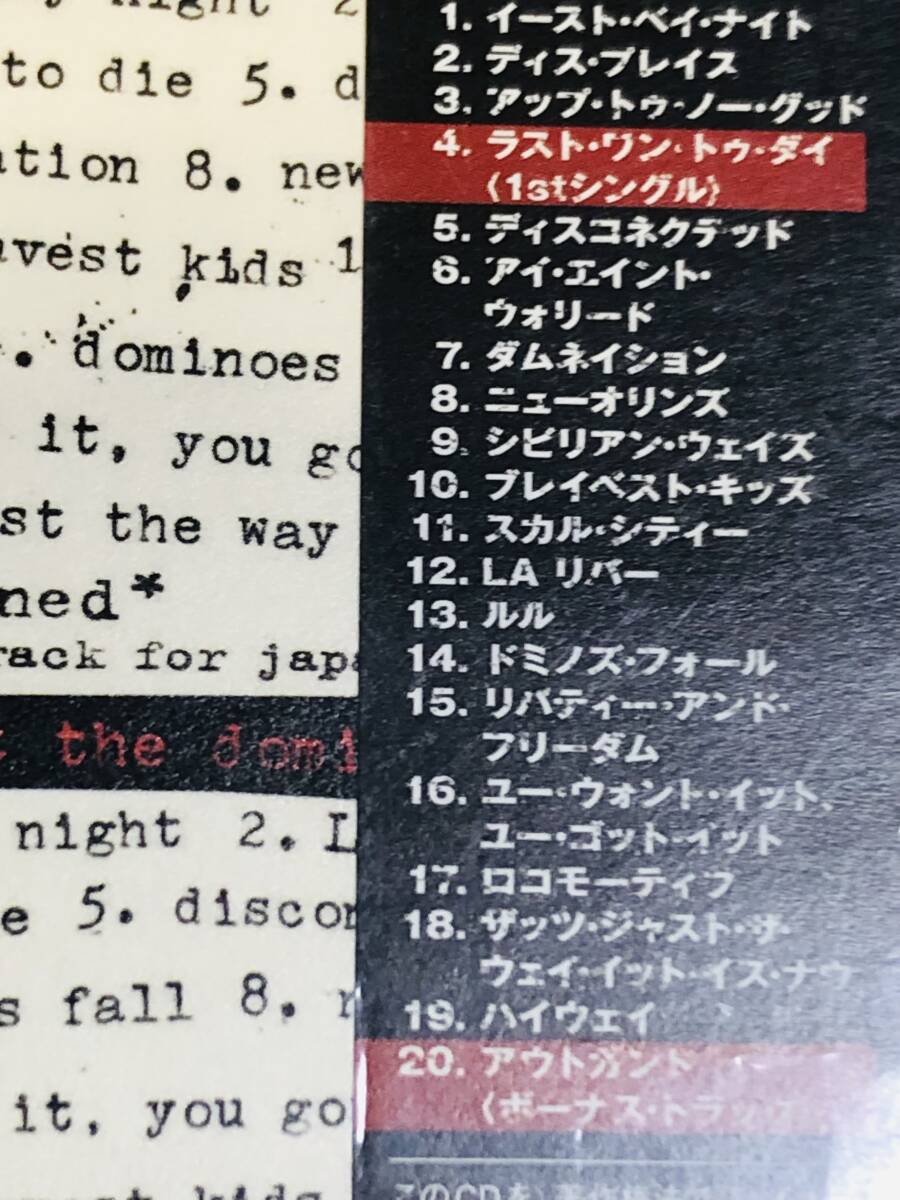 night 2
to die 5. d
ation 8. new
avest kids 1
. dominoes
it, you go
st the way
ned*
rack for japa
t the domi
night 2. L
e 5. discon
s fall 8. r
it, you go
1. イースト・ベイ・ナイト
2. ディス・プレイス
3. アップ・トゥ・ノー・グッド
4. ラスト・ワン・トゥ・ダイ
(1stシングル)
5. ディスコネクテッド
6. アイ・エイント・
ウォリード
7. ダムネイション
8. ニューオリンズ
9. シビリアン・ウェイズ
10. ブレイベスト・キッズ
11. スカル・シティー
12. LA リバー
13. ルル
14. ドミノズ・フォール
15. リバティー・アンド・
フリーダム
16. ユー・ウォント・イット、
ユー・ゴット・イット
17. ロコモーティフ
18. ザッツ・ジャスト・ザ・
ウェイ・イット・イズ・ナウ
19. ハイウェイ
20. アウトガント
(ボーナス・トラック
このCDを